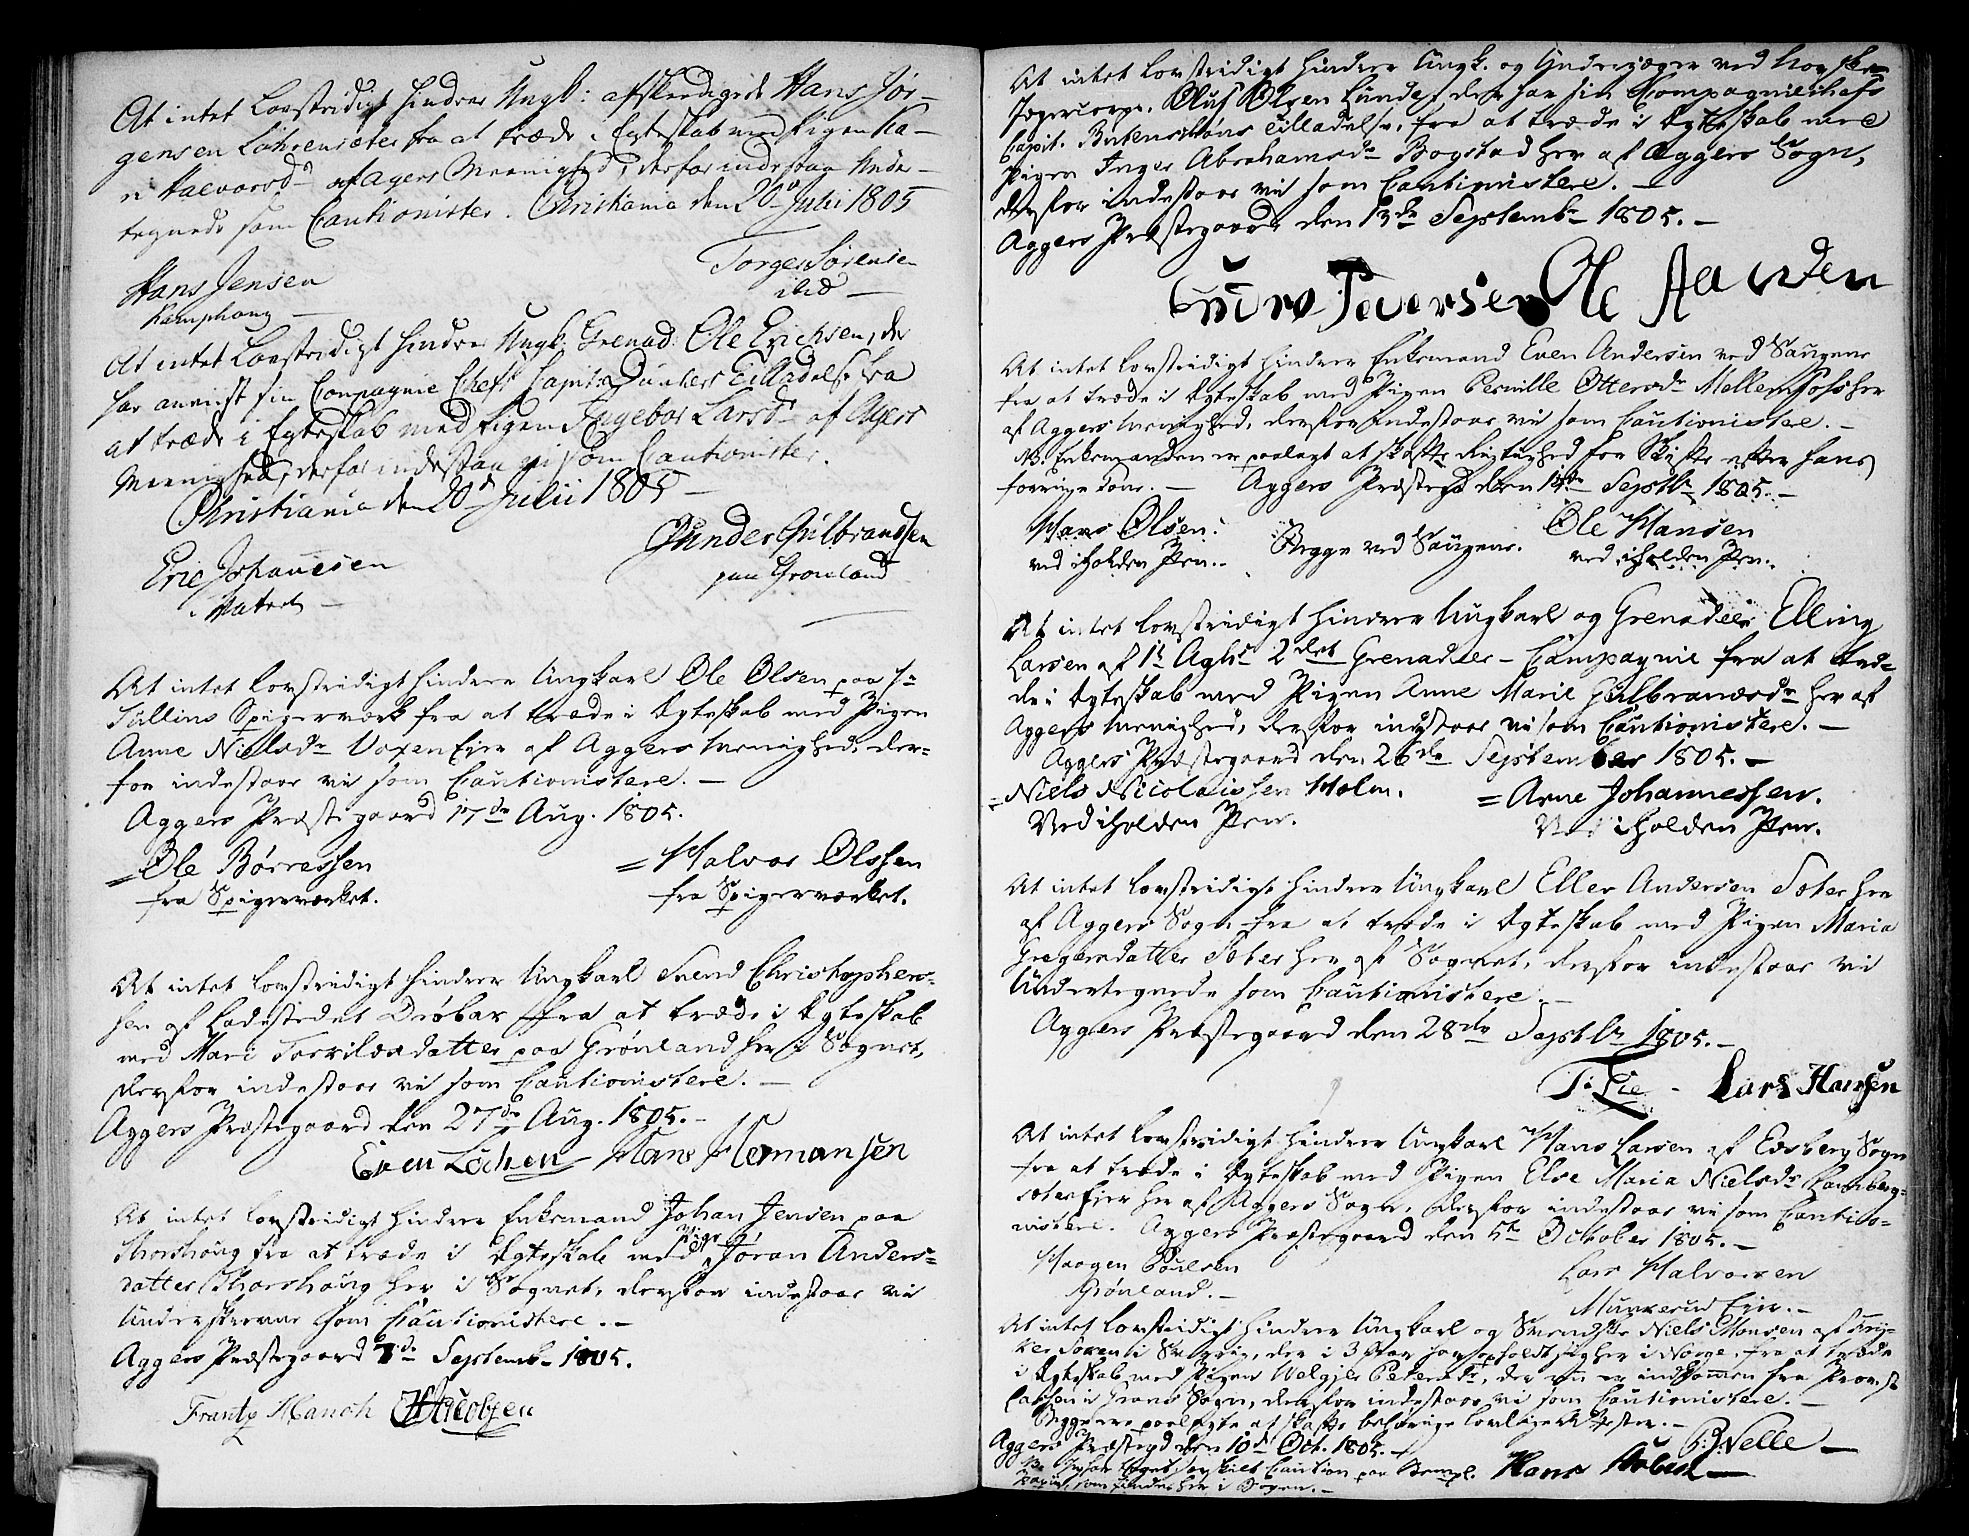 At intet Lovstridigt hindrer Ungk: afskedigede Hans Jør-
gensen fra at træde i Egteskab med Pigen Ka-
ri Halvorsd. af Agers Meenighed, derfor indestaa Unde-
tegnede som Cautionister. Christiania den 20de Julii 1805
Hans Jensen
Kamphoug
Torger Sørensen
ibid
At intet Lovstridigt hindrer Ungk. Grenad. Ole Erichsen, der
har anviist sin Compagnie Chefs Capit. Tilladelse fra
at træde i Egteskab med Pigen Ingebor Larsd. af Agers
Meenighed, derfor indestaa vi som Cautionister.
Christiania den 20de Julii 1805
Eric Johannesen
Gunder Gulbrandsen
paa Grønland
At intet lovstridigt hindrer Ungkarl Ole Olsen paa Hr
Tullins Spigerværk fra at træde i Egteskab med Pigen
Anne Nielsdr Voxen Eier af Aggers Menighed, der-
for indestaar vi som Cautionistere. –
Aggers Præstegaard 17de Aug. 1805.
= Ole Børresen
fra Spigerværket.
= Halvor Olssen
fra Spigerværket.
At intet lovstridigt hindrer Ungkarl Svend Christopher-
sen af Ladestedet Drøbak fra at træde i Egteskab
med Mari Torkilsdatter paa Grønland her i Sognet,
derfor indestaar vi som Cautionistere. –
Aggers Præstegaard den 27de Aug. 1805. –
Even Løchen Hans Hermansen
At intet lovstridigt hindrer Enkemand Johan Jensen paa
Thorshoug fra at træde i Egteskab med Pige Jøran Anders-
datter Thorshoug her i Sognet, derfor indestaar vi
Underskrevne som Cautionistere. –
Aggers Præstegaard de Septemb. 1805.
Frantz Manch Jacobsen
At intet lovstridigt hindrer Ungk. og Underjæger ved Norske
Jægercorps. Oluf Olsen Lunde, der har sin Compagniechefs
Capit. Tilladelse, fra at træde i Egteskab med
Pigen Inger Abrahamsdr Bogstad her af Aggers Sogn,
derfor indestaar vi som Cautionistere. –
Aggers Præstegaard den 13de Septembr 1805. –
Peversen Ole
At intet lovstridigt hindrer Enkemand Even Andersen ved Saugene
fra at træde i Egteskab med Pigen Pernille Ottersdr her
af Aggers Menighed, derfor Indestaar vi som Cautionistere. –
NB. Enkemanden er paalagt at skaffe Rigtighed for Skifte efter hans
forrige Kone. – Aggers Præstegd den 14de Septbr 1805. –
Hans Olsen.
ved iholden Pen.
Begge ved Saugene.
Ole Hansen
ved iholden Pen.
At intet lovstridigt hindrer Ungkarl og Grenadeer Elling
Larsen af 1t Aghs 2det Grenadeer-Compagnie fra at træ-
de i Egteskab med Pigen Anne Marie Gulbrandsdr her af
Aggers Menighed, derfor indestaar vi som Cautionistere. –
Aggers Præstegaard den 26de September 1805. –
= Niels Nicolaissen Holm.
Ved iholden Pen.
= Arne Johannessen.
Ved iholden Pen.
At intet lovstridigt hindrer Ungkarl Eller Andersen her
af Aggers Sogn fra at træde i Egteskab med Pigen Maria
Gregersdatter her af Sognet, derfor indestaar vi
Undertegnede som Cautionistere. –
Aggers Præstegaard den 28de Septbr 1805. –
Lars Hansen
At intet lovstridigt hindrer Ungkarl Hans Larsen af Edsberg Sogn
fra at træde i Egteskab med Pigen Else Maria Nielsdr
her af Aggers Sogn, derfor indestaar vi som Cautio-
nistere. Aggers Præstegaard den 5te October 1805. –
Haagen Poulsen
Grønland. –
Lars Halvorsen
Munkerud Eier. –
At intet lovstridigt hindrer Ungkarl og Niels Monsen af
i Sverrig, der i 3 Aar har opholdt sig her i Norge, fra at træde
i Egteskab med Pigen Petersdr, der nu er indkommen fra Provst
i Sogn, derfor indestaar vi som Cautionistere. –
Begge ere paalagte at skaffe behørige lovlige Attester. –
Aggers Præstegd den 10de Oct. 1805. –
P: Nelle –
Caution paa Stempl.
Hans
Papir, som findes her i Bogen. –